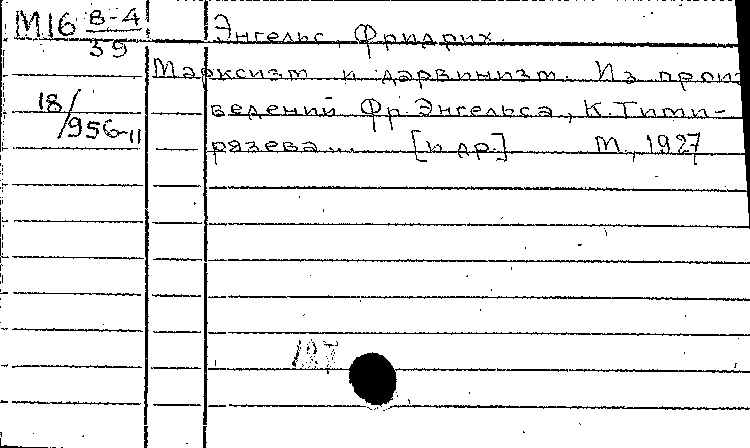 М16 В-4
39
Энгельс, Фридрих.
Марксизм и дарвинизм. Из произ-
ведений Фр. Энгельса, К. Тими-
рязева... [и др.] М., 1927
18/956-11
127